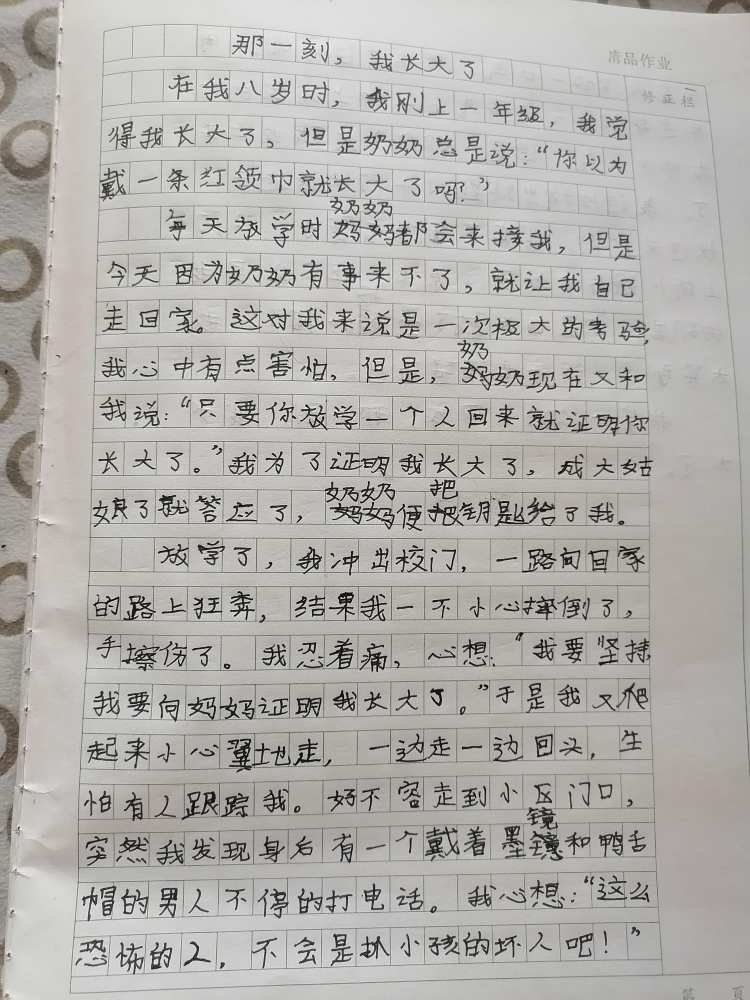 清品作业
修正栏
那一刻，我长大了
在我八岁时，我刚上一年级，我觉
得我长大了，但是奶奶总是说：“你以为
戴一条红领巾就长大了吗？”
奶奶
每天放学时妈妈都会来接我，但是
今天因为奶奶有事来不了，就让我自己
走回家。这对我来说是一次极大的考验，
奶
我心中有点害怕，但是，妈奶现在又和
我说：“只要你放学一个人回来就证明你
长大了。”我为了证明我长大了，成大姑
奶奶 把
娘了就答应了，妈妈便把钥匙给了我。
放学了，我冲出校门，一路向回家
的路上狂奔，结果我一不小心摔倒了，
手擦伤了。我忍着痛，心想：“我要坚持
我要向妈妈证明我长大了。”于是我又爬
起来小心翼地走，一边走一边回头，生
怕有人跟踪我。好不容走到小区门口，
镜
突然我发现身后有一个戴着墨镜和鸭舌
帽的男人不停的打电话。我心想：“这么
恐怖的人，不会是扒小孩的坏人吧！”
第 页